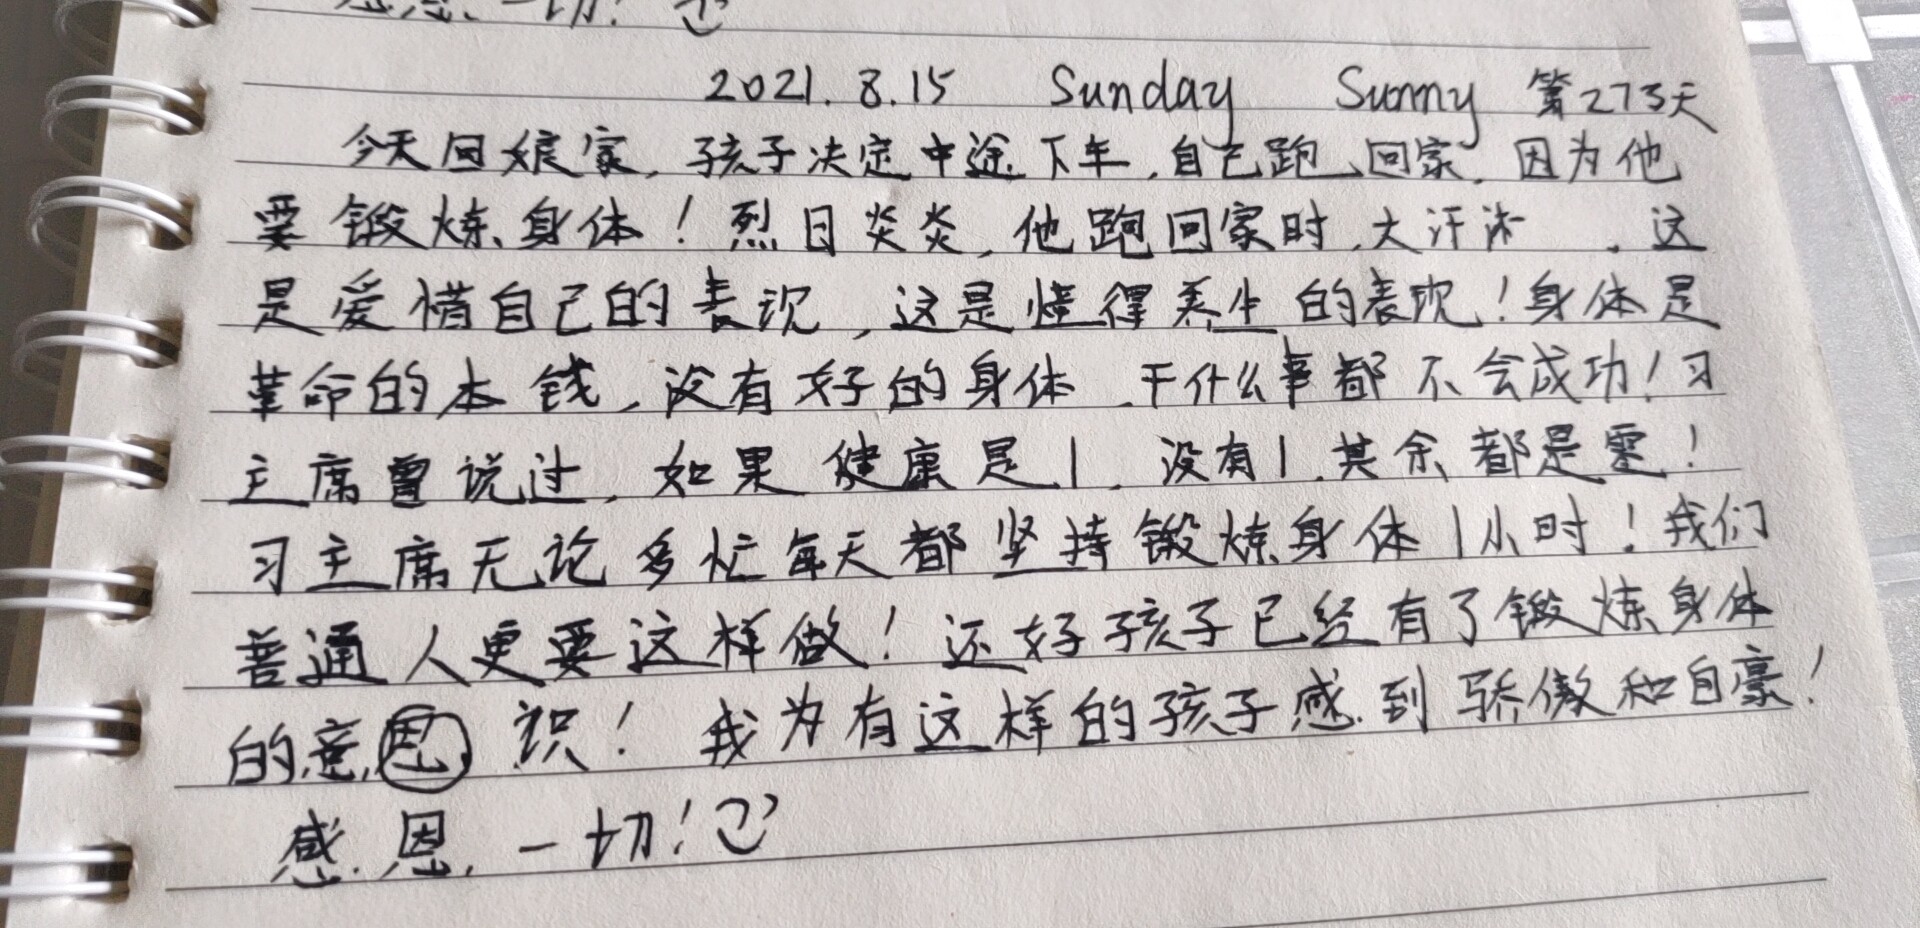 感恩一切!
2021.8.15 Sunday Sunny 第273天
今天回娘家,孩子决定中途下车,自己跑回家,因为他
要锻炼身体!烈日炎炎,他跑回家时,大汗淋 ,这
是爱惜自己的表现,这是懂得养生的表现!身体是
革命的本钱,没有好的身体,干什么事都不会成功!习
主席曾说过,如果健康是1,没有1,其余都是零!
习主席无论多忙每天都坚持锻炼身体1小时!我们
普通人更要这样做!还好孩子已经有了锻炼身体
的意识!我为有这样的孩子感到骄傲和自豪!
感恩一切!